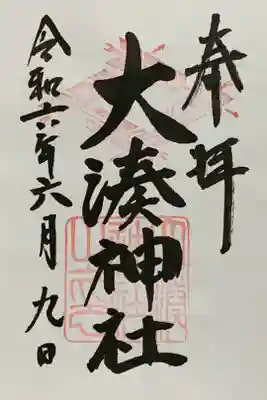 奉拝
大湊神社
令和六年六月九日